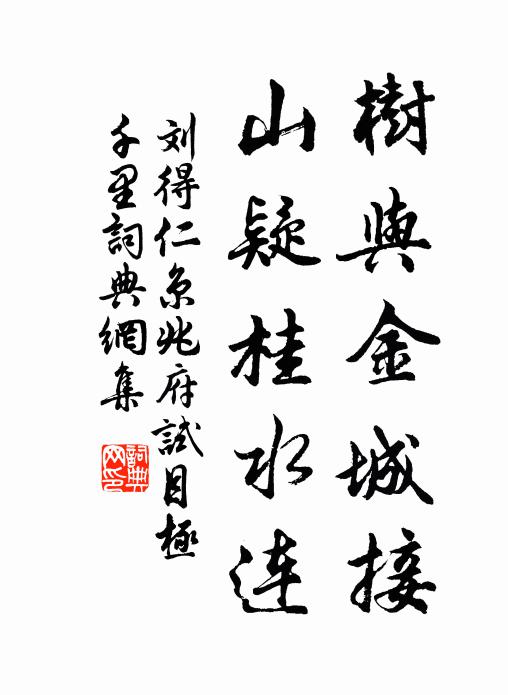 樹與金城接
山疑桂水连
刘得仁京兆府試目極
千里詞典網集
詞典网印